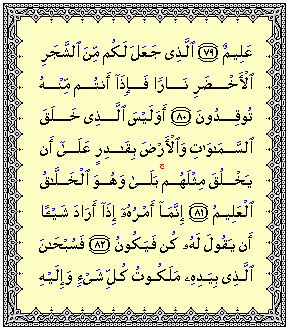 عَلِيمٌ ٧٩ ٱلَّذِى جَعَلَ لَكُم مِّنَ ٱلشَّجَرِ
ٱلْأَخْضَرِ نَارًا فَإِذَآ أَنتُم مِّنْهُ
تُوقِدُونَ ٨٠ أَوَلَيْسَ ٱلَّذِى خَلَقَ
ٱلسَّمَٰوَٰتِ وَٱلْأَرْضَ بِقَٰدِرٍ عَلَىٰٓ أَن
يَخْلُقَ مِثْلَهُم ۚ بَلَىٰ وَهُوَ ٱلْخَلَّٰقُ
ٱلْعَلِيمُ ٨١ إِنَّمَآ أَمْرُهُۥٓ إِذَآ أَرَادَ شَيْـًٔا
أَن يَقُولَ لَهُۥ كُن فَيَكُونُ ٨٢ فَسُبْحَٰنَ
ٱلَّذِى بِيَدِهِۦ مَلَكُوتُ كُلِّ شَىْءٍ وَإِلَيْهِ